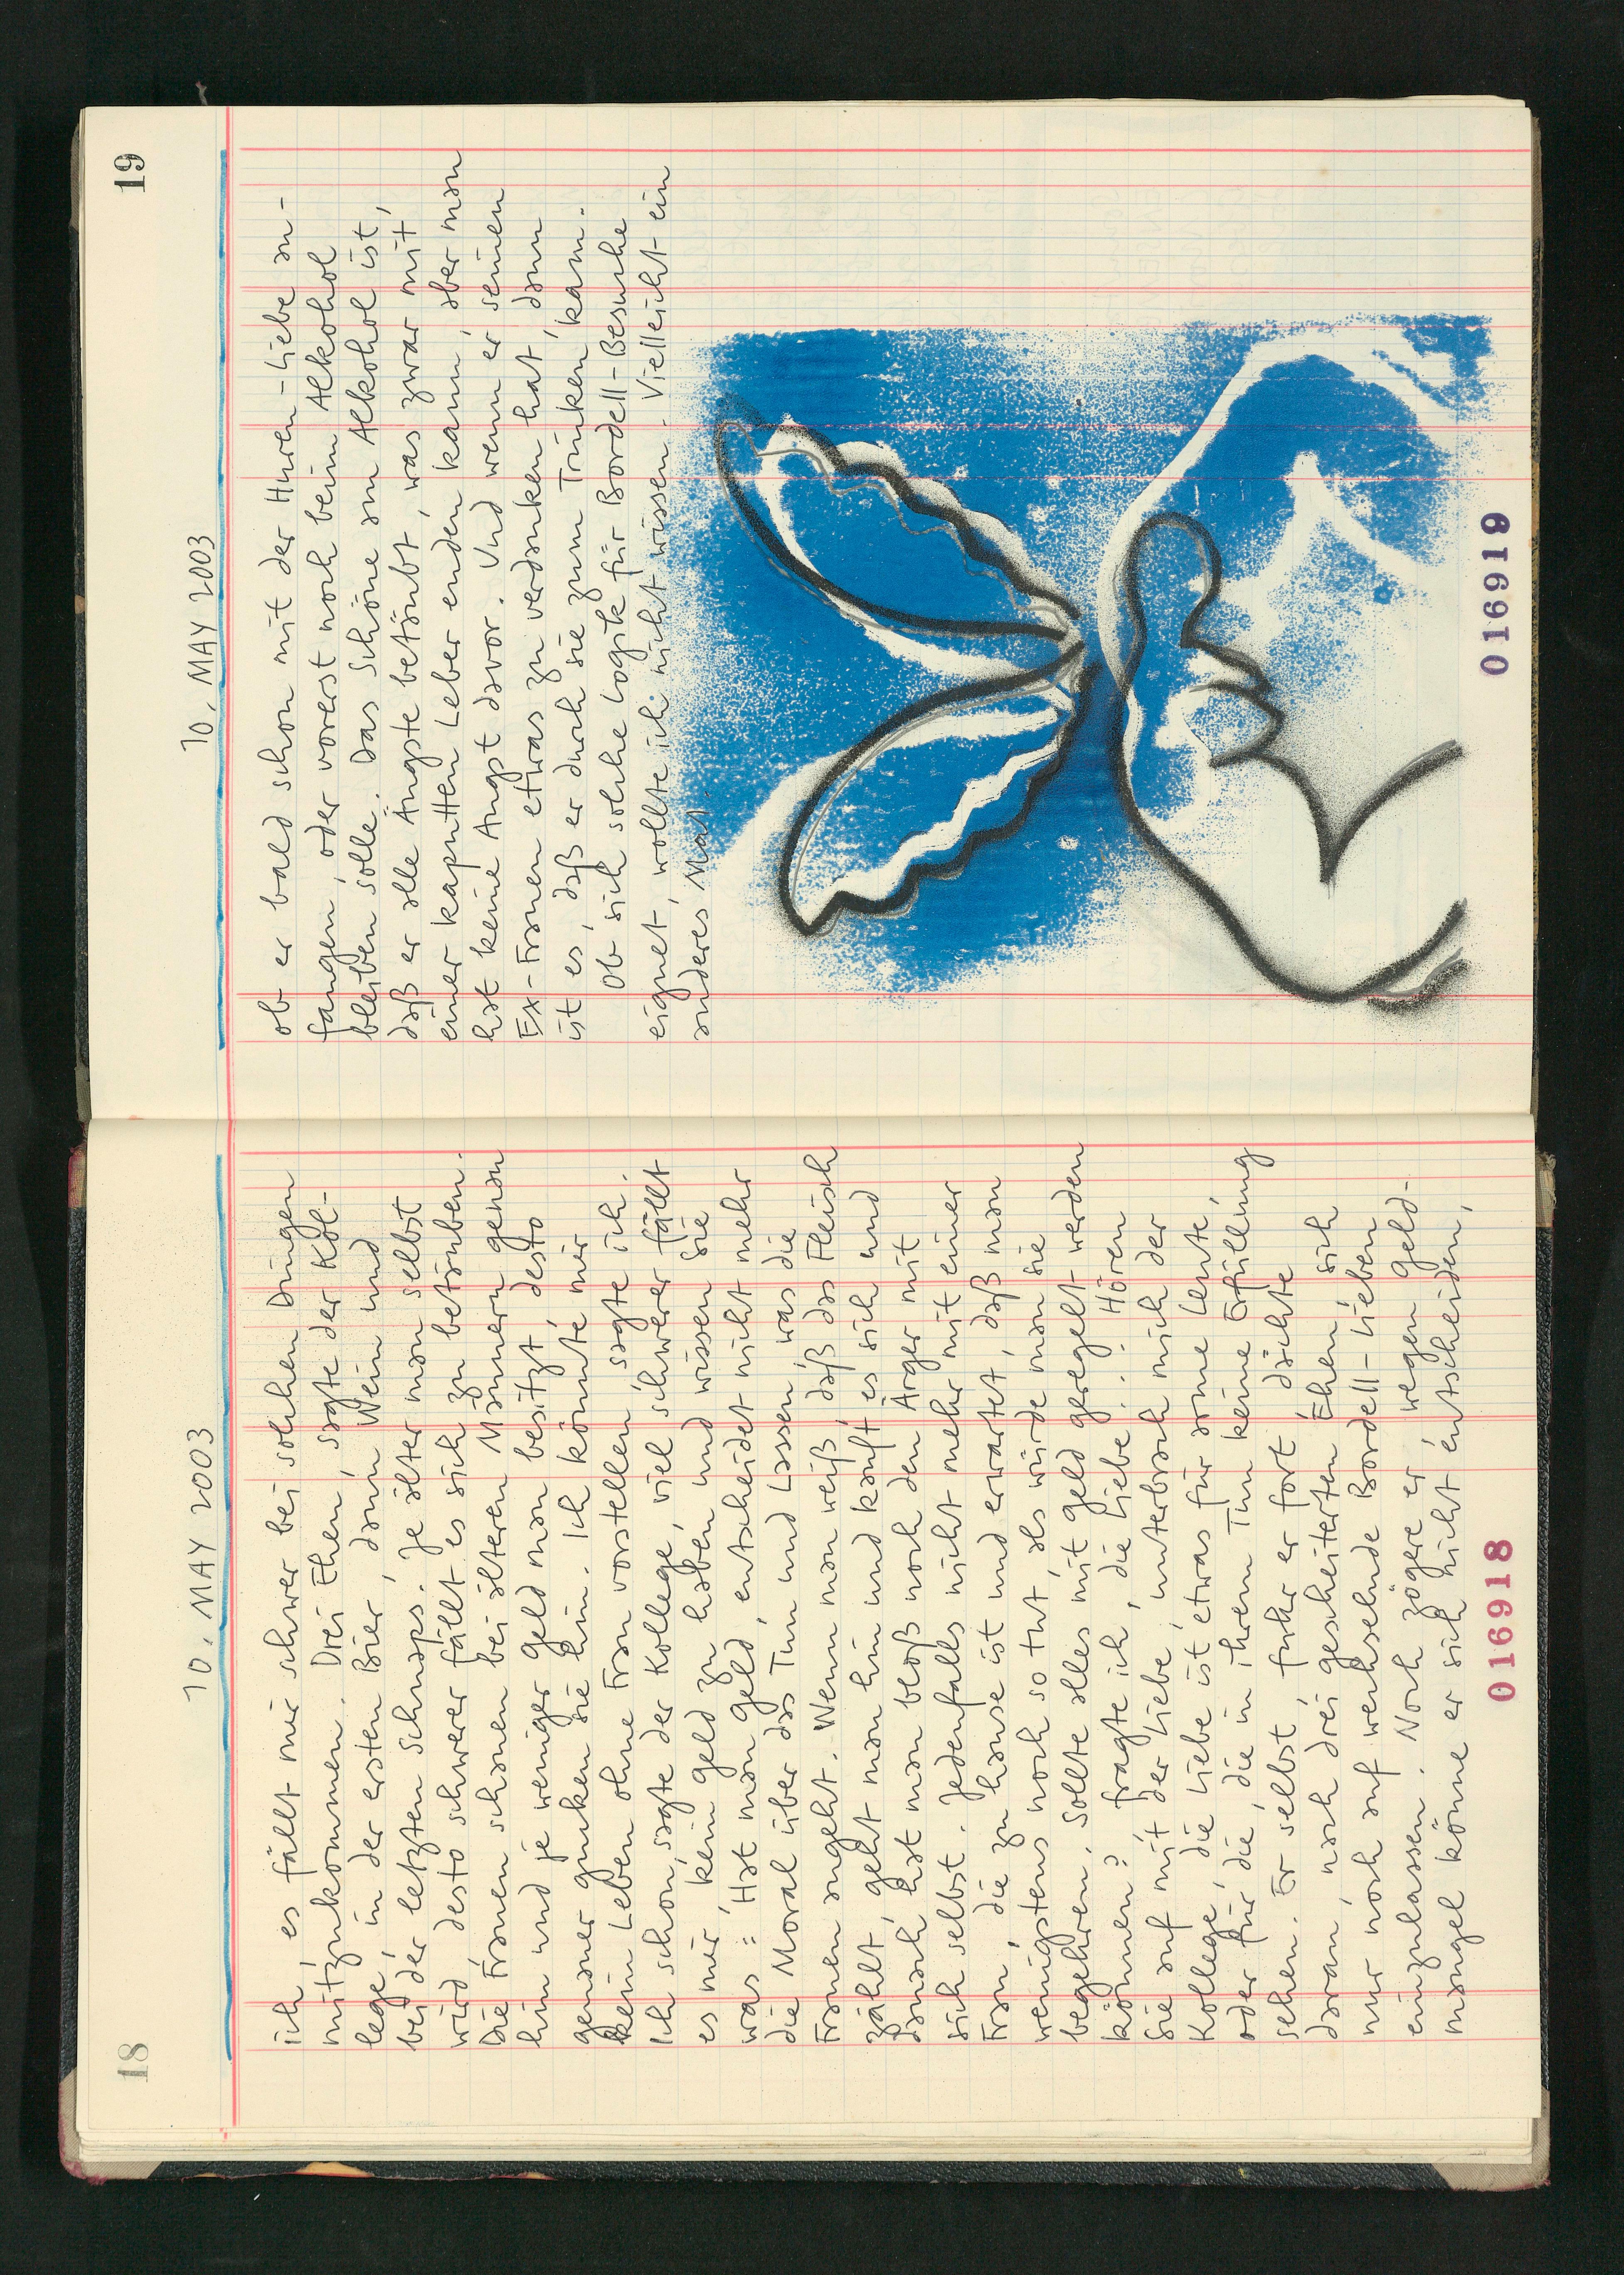 18
10. MAY 2003
ich, es fällt mir schwer bei solchen Dingen
mitzukommen. Drei Ehen, sagte der Kol-
lege, in der ersten Bier, dann Wein und
bei der letzten Schnaps. Je älter man selbst
wird, desto schwerer fällt es sich zu betäuben.
Die Frauen schauen bei älteren Männern genau
hin und je weniger Geld man besitzt, desto
genauer gucken sie hin. Ich könnte mir
kein Leben ohne Frau vorstellen, sagte ich.
Ich schon, sagte der Kollege, viel schwerer fällt
es mir, kein Geld zu haben und wissen Sie
was: Hat man Geld, entscheidet nicht mehr
die Moral über das Tun und Lassen, was die
Frauen angeht. Wenn man weiß, daß das Fleisch
zählt, geht man hin und kauft es sich und
danach hat man bloß noch den Ärger mit
sich selbst. Jedenfalls nicht mehr mit einer
Frau, die zu hause ist und erwartet, daß man
wenigstens noch so tut, als würde man sie
begehren. Sollte alles mit Geld geregelt werden
können? fragte ich, die Liebe...? Hören
Sie auf mit der Liebe, unterbrach mich der
Kollege, die Liebe ist etwas für arme Leute,
oder für die, die in ihrem Tun keine Erfüllung
sehen. Er selbst, fuhr er fort, dächte
daran, nach drei gescheiterten Ehen, sich
nur noch auf wechselnde Bordell-Lieben
einzulassen. Noch zögere er, wegen Geld-
mangel könne er sich nicht entscheiden,
016918
19
10. MAY 2003
ob er bald schon mit der Huren-Liebe an-
fangen, oder vorerst noch beim Alkohol
bleiben solle. Das Schöne am Alkohol ist,
daß er alle Ängste betäubt, was zwar mit
einer kaputten Leber enden kann, aber man
hat keine Angst davor. Und wenn er seinen
Ex-Frauen etwas zu verdanken hat, dann
ist es, daß er durch sie zum Trinken kam.
Ob sich solche Logik für Bordell-Besuche
eignet, wollte ich nicht wissen. Vielleicht ein
anderes Mal.
016919